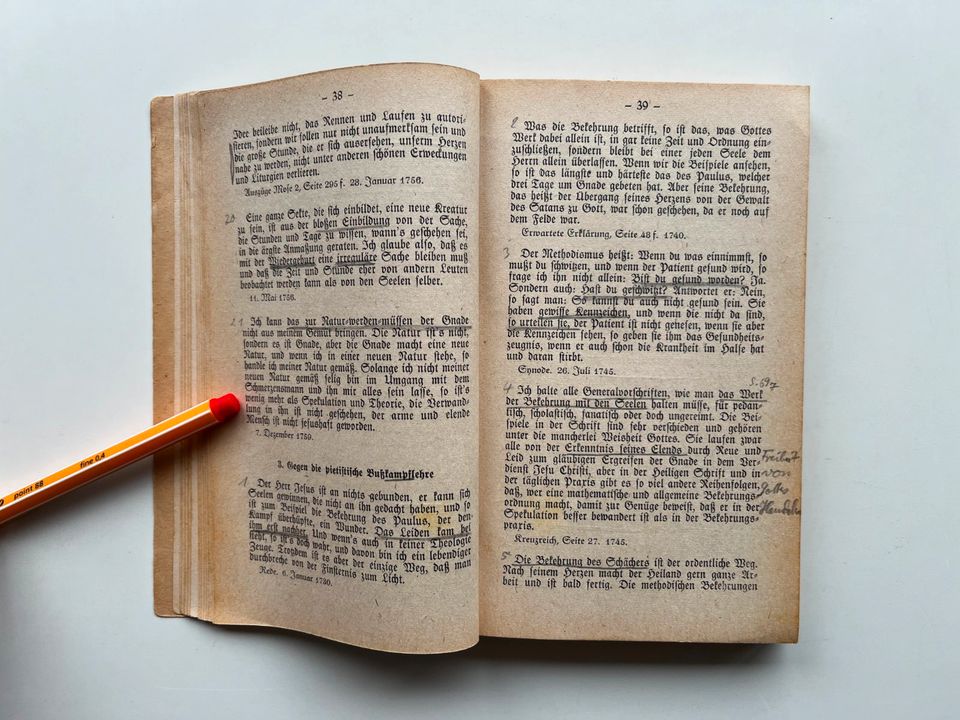 - 38 -
Idee beileibe nicht, das Rennen und Laufen zu autori-
sieren, sondern wir sollen nur nicht unaufmerksam sein und
die große Stunde, die er sich ausersehen, unserm Herzen
nahe zu werden, nicht unter anderen schönen Erweckungen
und Liturgien verlieren.
Auszüge Mose 2, Seite 295 f. 28. Januar 1756.
20 Eine ganze Sekte, die sich einbildet, eine neue Kreatur
zu sein, ist aus der bloßen Einbildung von der Sache,
die Stunden und Tage zu wissen, wann's geschehen sei,
in die ärgste Anmaßung geraten. Ich glaube also, daß es
mit der Wiedergeburt eine irreguläre Sache bleiben muß
und daß die Zeit und Stunde eher von andern Leuten
beobachtet werden kann als von den Seelen selber.
11. Mai 1756.
21 Ich kann das zur Natur-werden-müssen der Gnade
nicht aus meinem Gemüt bringen. Die Natur ist's nicht,
sondern es ist Gnade, aber die Gnade macht eine neue
Natur, und wenn ich in einer neuen Natur stehe, so
handle ich meiner Natur gemäß. Solange ich nicht meiner
neuen Natur gemäß selig bin im Umgang mit dem
Schmerzensmann und ihn mir alles sein lasse, so ist's
wenig mehr als Spekulation und Theorie, die Verwand-
lung in ihn ist nicht geschehen, der arme und elende
Mensch ist nicht jesushaft geworden.
7. Dezember 1759.
3. Gegen die pietistische Bußkampflehre
1 Der Herr Jesus ist an nichts gebunden, er kann sich
Seelen gewinnen, die nicht an ihn gedacht haben, und so
ist zum Beispiel die Bekehrung des Paulus, der den
Kampf überhüpfte, ein Wunder. Das Leiden kam bei
ihm erst nachher. Und wenn's auch in keiner Theologie
steht, so ist's doch wahr, und davon bin ich ein lebendiger
Zeuge. Trotzdem ist es aber der einzige Weg, daß man
durchbreche von der Finsternis zum Licht.
Rede. 6. Januar 1730.
fine 0,4
point 88
- 39 -
2 Was die Bekehrung betrifft, so ist das, was Gottes
Werk dabei allein ist, in gar keine Zeit und Ordnung ein-
zuschließen, sondern bleibt bei einer jeden Seele dem
Herrn allein überlassen. Wenn wir die Beispiele ansehen,
so ist das längste und härteste das des Paulus, welcher
drei Tage um Gnade gebeten hat. Aber seine Bekehrung,
das heißt der Übergang seines Herzens von der Gewalt
des Satans zu Gott, war schon geschehen, da er noch auf
dem Felde war.
Erwartete Erklärung, Seite 48 f. 1740.
3 Der Methodismus heißt: Wenn du was einnimmst, so
mußt du schwitzen, und wenn der Patient gesund wird, so
frage ich ihn nicht allein: Bist du gesund worden? Ja.
Sondern auch: Hast du geschwitzt? Antwortet er: Nein,
so sagt man: So kannst du auch nicht gesund sein. Sie
haben gewisse Kennzeichen, und wenn die nicht da sind,
so urteilen sie, der Patient ist nicht genesen, wenn sie aber
die Kennzeichen sehen, so geben sie ihm das Gesundheits-
zeugnis, wenn er auch schon die Krankheit im Halse hat
und daran stirbt.
Synode. 26. Juli 1745.
S. 69
4 Ich halte alle Generalvorschriften, wie man das Werk
der Bekehrung mit den Seelen halten müsse, für pedan-
tisch, scholastisch, fanatisch oder doch ungereimt. Die Bei-
spiele in der Schrift sind sehr verschieden und gehören
unter die mancherlei Weisheit Gottes. Sie laufen zwar
alle von der Erkenntnis seines Elends durch Reue und
Leid zum gläubigen Ergreifen der Gnade in dem Ver-
dienst Jesu Christi, aber in der Heiligen Schrift und in
der täglichen Praxis gibt es so viel andre Reihenfolgen,
daß, wer eine mathematische und allgemeine Bekehrungs-
ordnung macht, damit zur Genüge beweist, daß er in der
Spekulation besser bewandert ist als in der Bekehrungs-
praxis.
Freiheit
von
Kreuzreich, Seite 27. 1745.
5 Die Bekehrung des Schächers ist der ordentliche Weg.
Nach seinem Herzen macht der Heiland gern ganze Ar-
beit und ist bald fertig. Die methodischen Bekehrungen